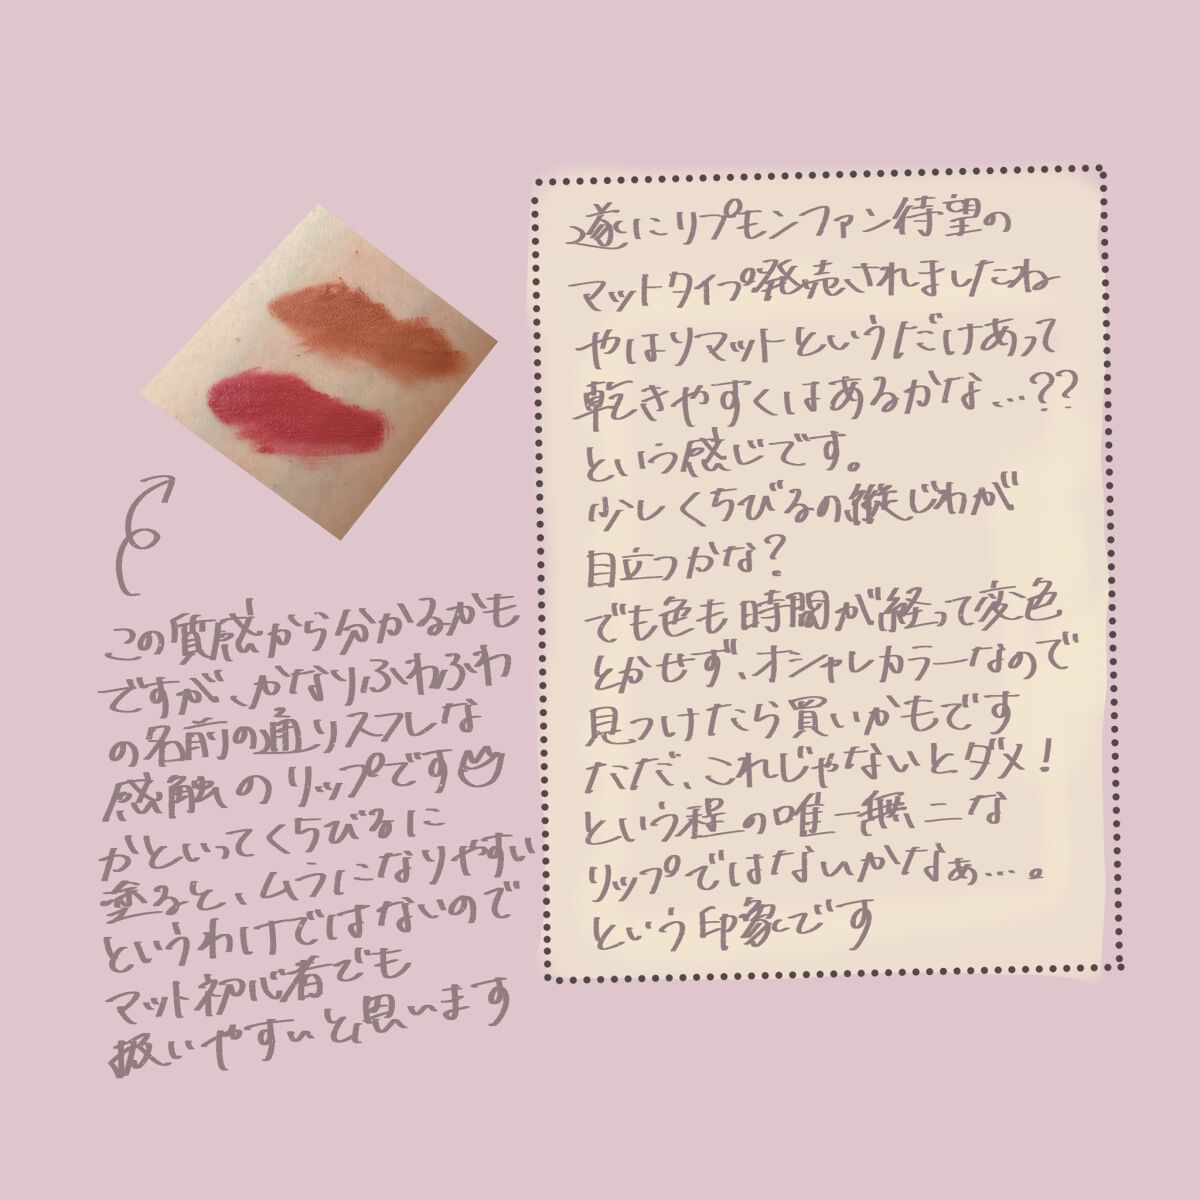 遂にリプモンファン待望の
マットタイプ発売されましたね
やはりマットというだけあって
乾きやすくはあるかな…??
という感じです。
少しくちびるの縦じわが
目立つかな?
でも色も時間が経って変色
とかせず、オシャレカラーなので
見つけたら買いかもです
ただ、これじゃないとダメ!
という程の唯一無二な
リップではないかなぁ…。
という印象です
この質感から分かるかも
ですが、かなりふわふわ
の名前の通りスフレな
感触のリップです
かといってくちびるに
塗ると、ムラになりやすい
というわけではないので
マット初心者でも
扱いやすいと思います